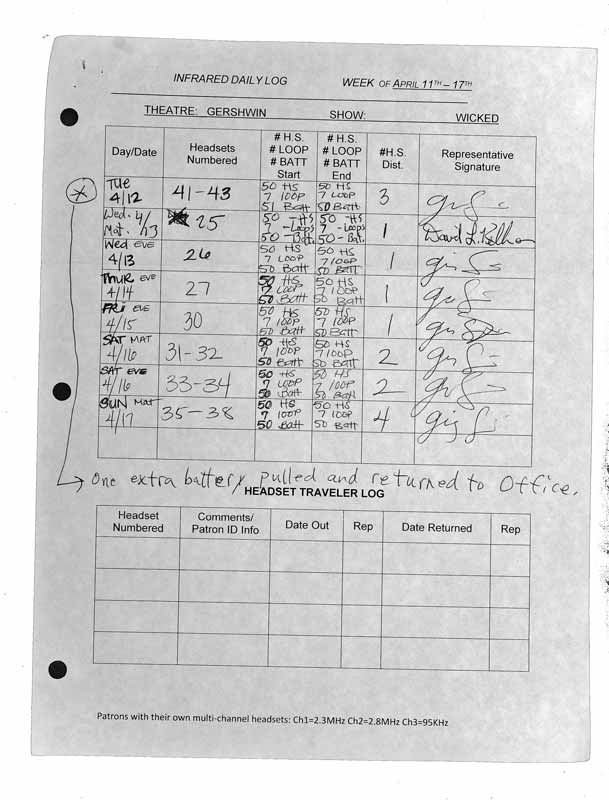 INFRARED DAILY LOG WEEK OF APRIL 11TH – 17TH
THEATRE: GERSHWIN SHOW: WICKED
Day/Date Headsets Numbered # H.S. # LOOP # BATT Start # H.S. # LOOP # BATT End #H.S. Dist. Representative Signature
TUE 4/12 41-43 50 HS 7 LOOP 51 Batt 50 HS 7 LOOP 50 Batt 3
Wed. 4/13 Mat. 25 50 -HS 7 -Loops 50 -Bat. 50 -HS 7 -Loops 50 -Bat. 1 David L.
WED EVE 4/13 26 50 HS 7 LOOP 50 Batt 50 HS 7 LOOP 50 Batt 1
THUR EVE 4/14 27 50 HS 7 LOOP 50 Batt 50 HS 7 LOOP 50 Batt 1
FRI EVE 4/15 30 50 HS 7 LOOP 50 Batt 50 HS 7 LOOP 50 Batt 1
SAT MAT 4/16 31-32 50 HS 7 LOOP 50 Batt 50 HS 7 LOOP 50 Batt 2
SAT EVE 4/16 33-34 50 HS 7 LOOP 50 Batt 50 HS 7 LOOP 50 Batt 2
SUN Mat 4/17 35-38 50 HS 7 LOOP 50 Batt 50 HS 7 LOOP 50 Batt 4
One extra battery pulled and returned to Office.
HEADSET TRAVELER LOG
Headset Numbered Comments/ Patron ID Info Date Out Rep Date Returned Rep
Patrons with their own multi-channel headsets: Ch1=2.3MHz Ch2=2.8MHz Ch3=95KHz